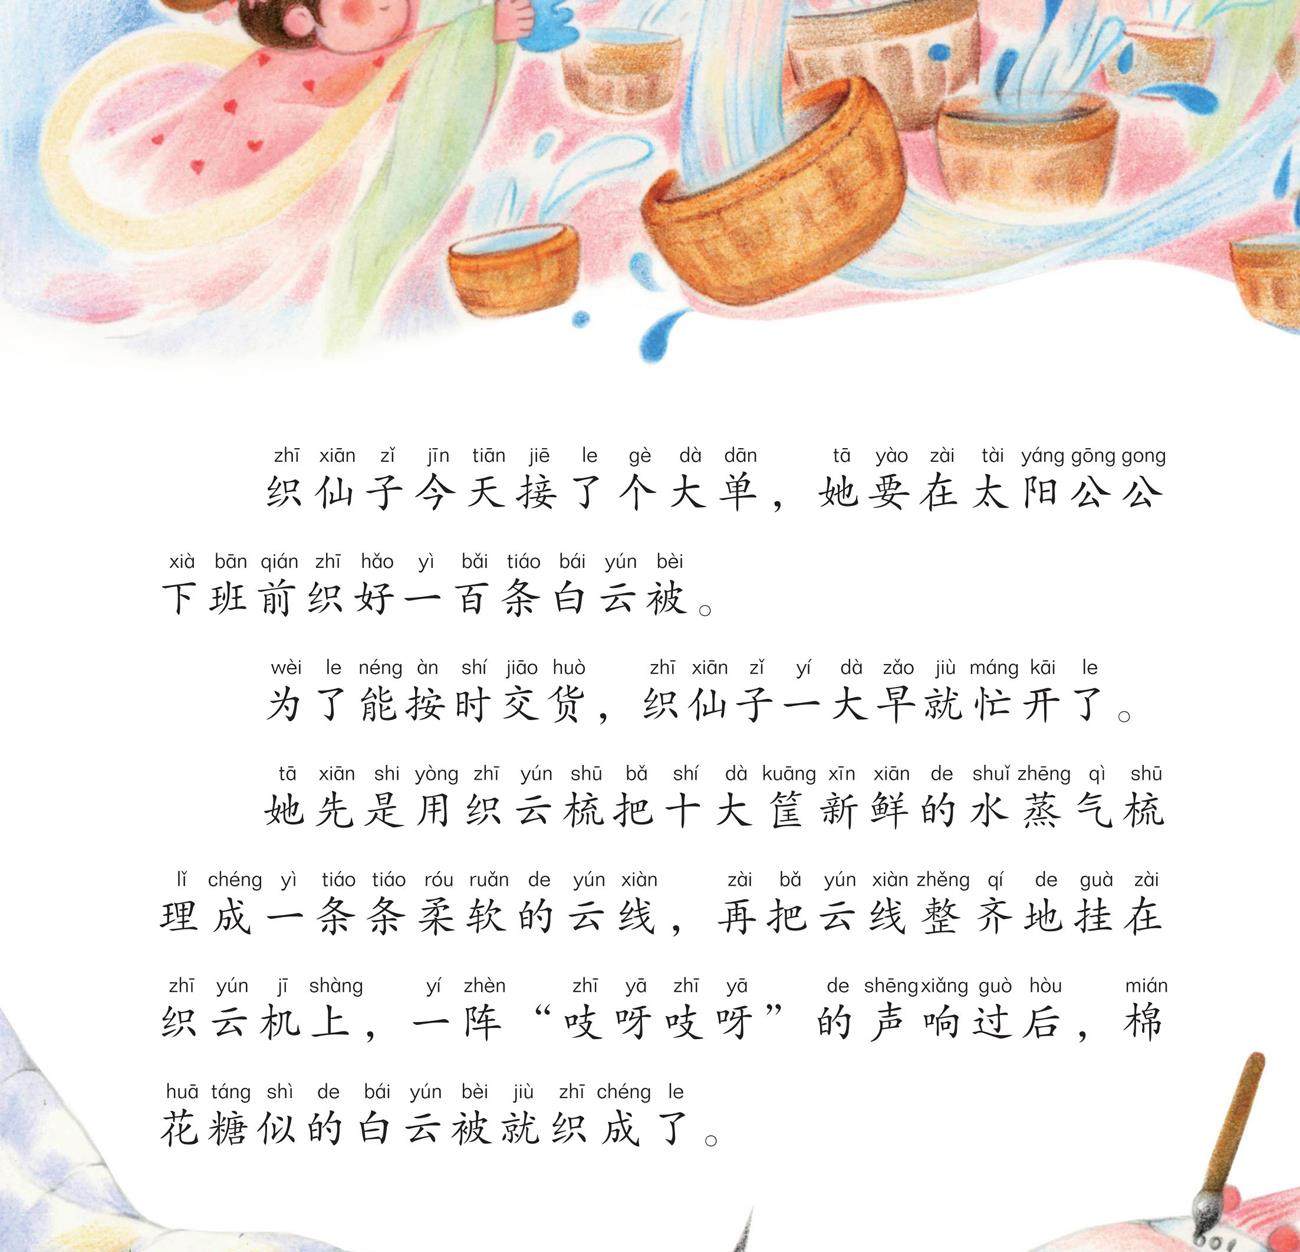 zhī xiān zǐ jīn tiān jiē le gè dà dān tā yào zài tài yáng gōng gong
织仙子今天接了个大单，她要在太阳公公
xià bān qián zhī hǎo yì bǎi tiáo bái yún bèi
下班前织好一百条白云被。
wèi le néng àn shí jiāo huò zhī xiān zǐ yí dà zǎo jiù máng kāi le
为了能按时交货，织仙子一大早就忙开了。
tā xiān shi yòng zhī yún shū bǎ shí dà kuāng xīn xiān de shuǐ zhēng qì shū
她先是用织云梳把十大筐新鲜的水蒸气梳
lǐ chéng yì tiáo tiáo róu ruǎn de yún xiàn zài bǎ yún xiàn zhěng qí de guà zài
理成一条条柔软的云线，再把云线整齐地挂在
zhī yún jī shàng yí zhèn zhī yā zhī yā de shēng xiǎng guò hòu mián
织云机上，一阵“吱呀吱呀”的声响过后，棉
huā táng shì de bái yún bèi jiù zhī chéng le
花糖似的白云被就织成了。